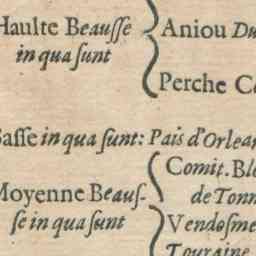 Haulte Beauſſe
in qua ſunt
Aniou Du
Perche C
Baſſe in qua ſunt: Pais d'Orlean
Moyenne Beauſ-
ſe in qua ſunt
Comit. Ble
de Tonn
Vendoſme
Touraine